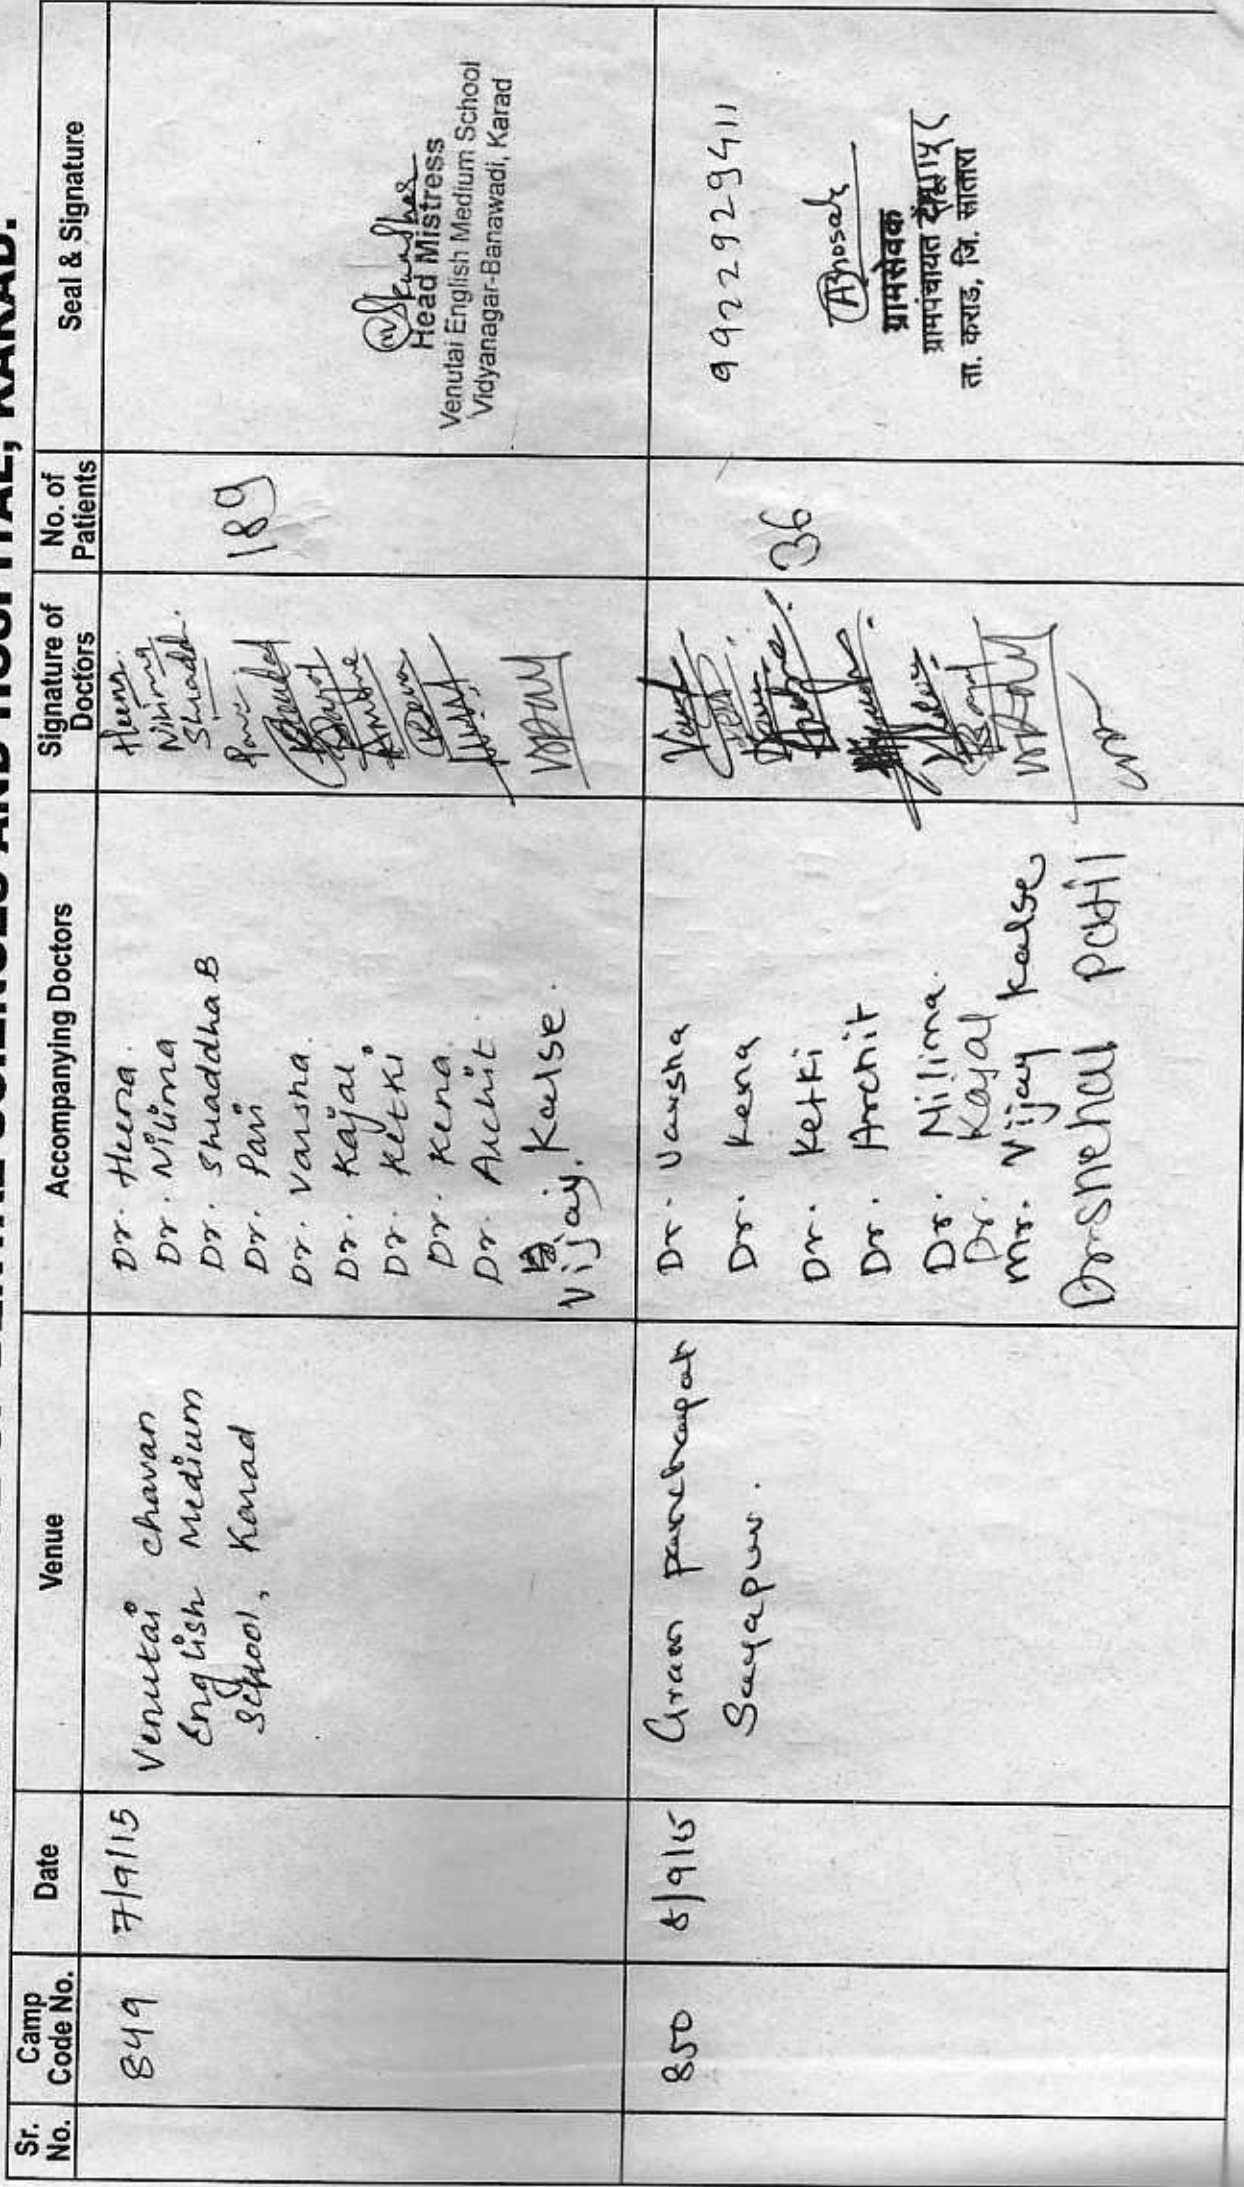 DENTAL SCIENCES AND HOSPITAL, KARAD.
Sr. No.
Camp Code No.
Date
Venue
Accompanying Doctors
Signature of Doctors
No. of Patients
Seal & Signature
849
7/9/15
Venutai chavan
English Medium
School, Karad
Dr. Heena.
Dr. Nilima
Dr. Shraddha.B
Dr. Pari
Dr. Varsha.
Dr. Kajal
Dr. Ketki
Dr. Kena.
Dr. Archit.
Vijay. Kalse.
Heena.
Nilima
Shraddh.
189
Head Mistress
Venutai English Medium School
Vidyanagar-Banawadi, Karad
850
8/9/15
Gram panchayat
Sayapur.
Dr. Varsha
Dr. Kena
Dr. Ketki
Dr. Archit
Dr. Nilima.
Dr. Kajal
Mr. Vijay Kalse
Dr. Snehal Patil
36
9922929411
ABhosale
ग्रामसेवक
ग्रामपंचायत
ता. कराड, जि. सातारा